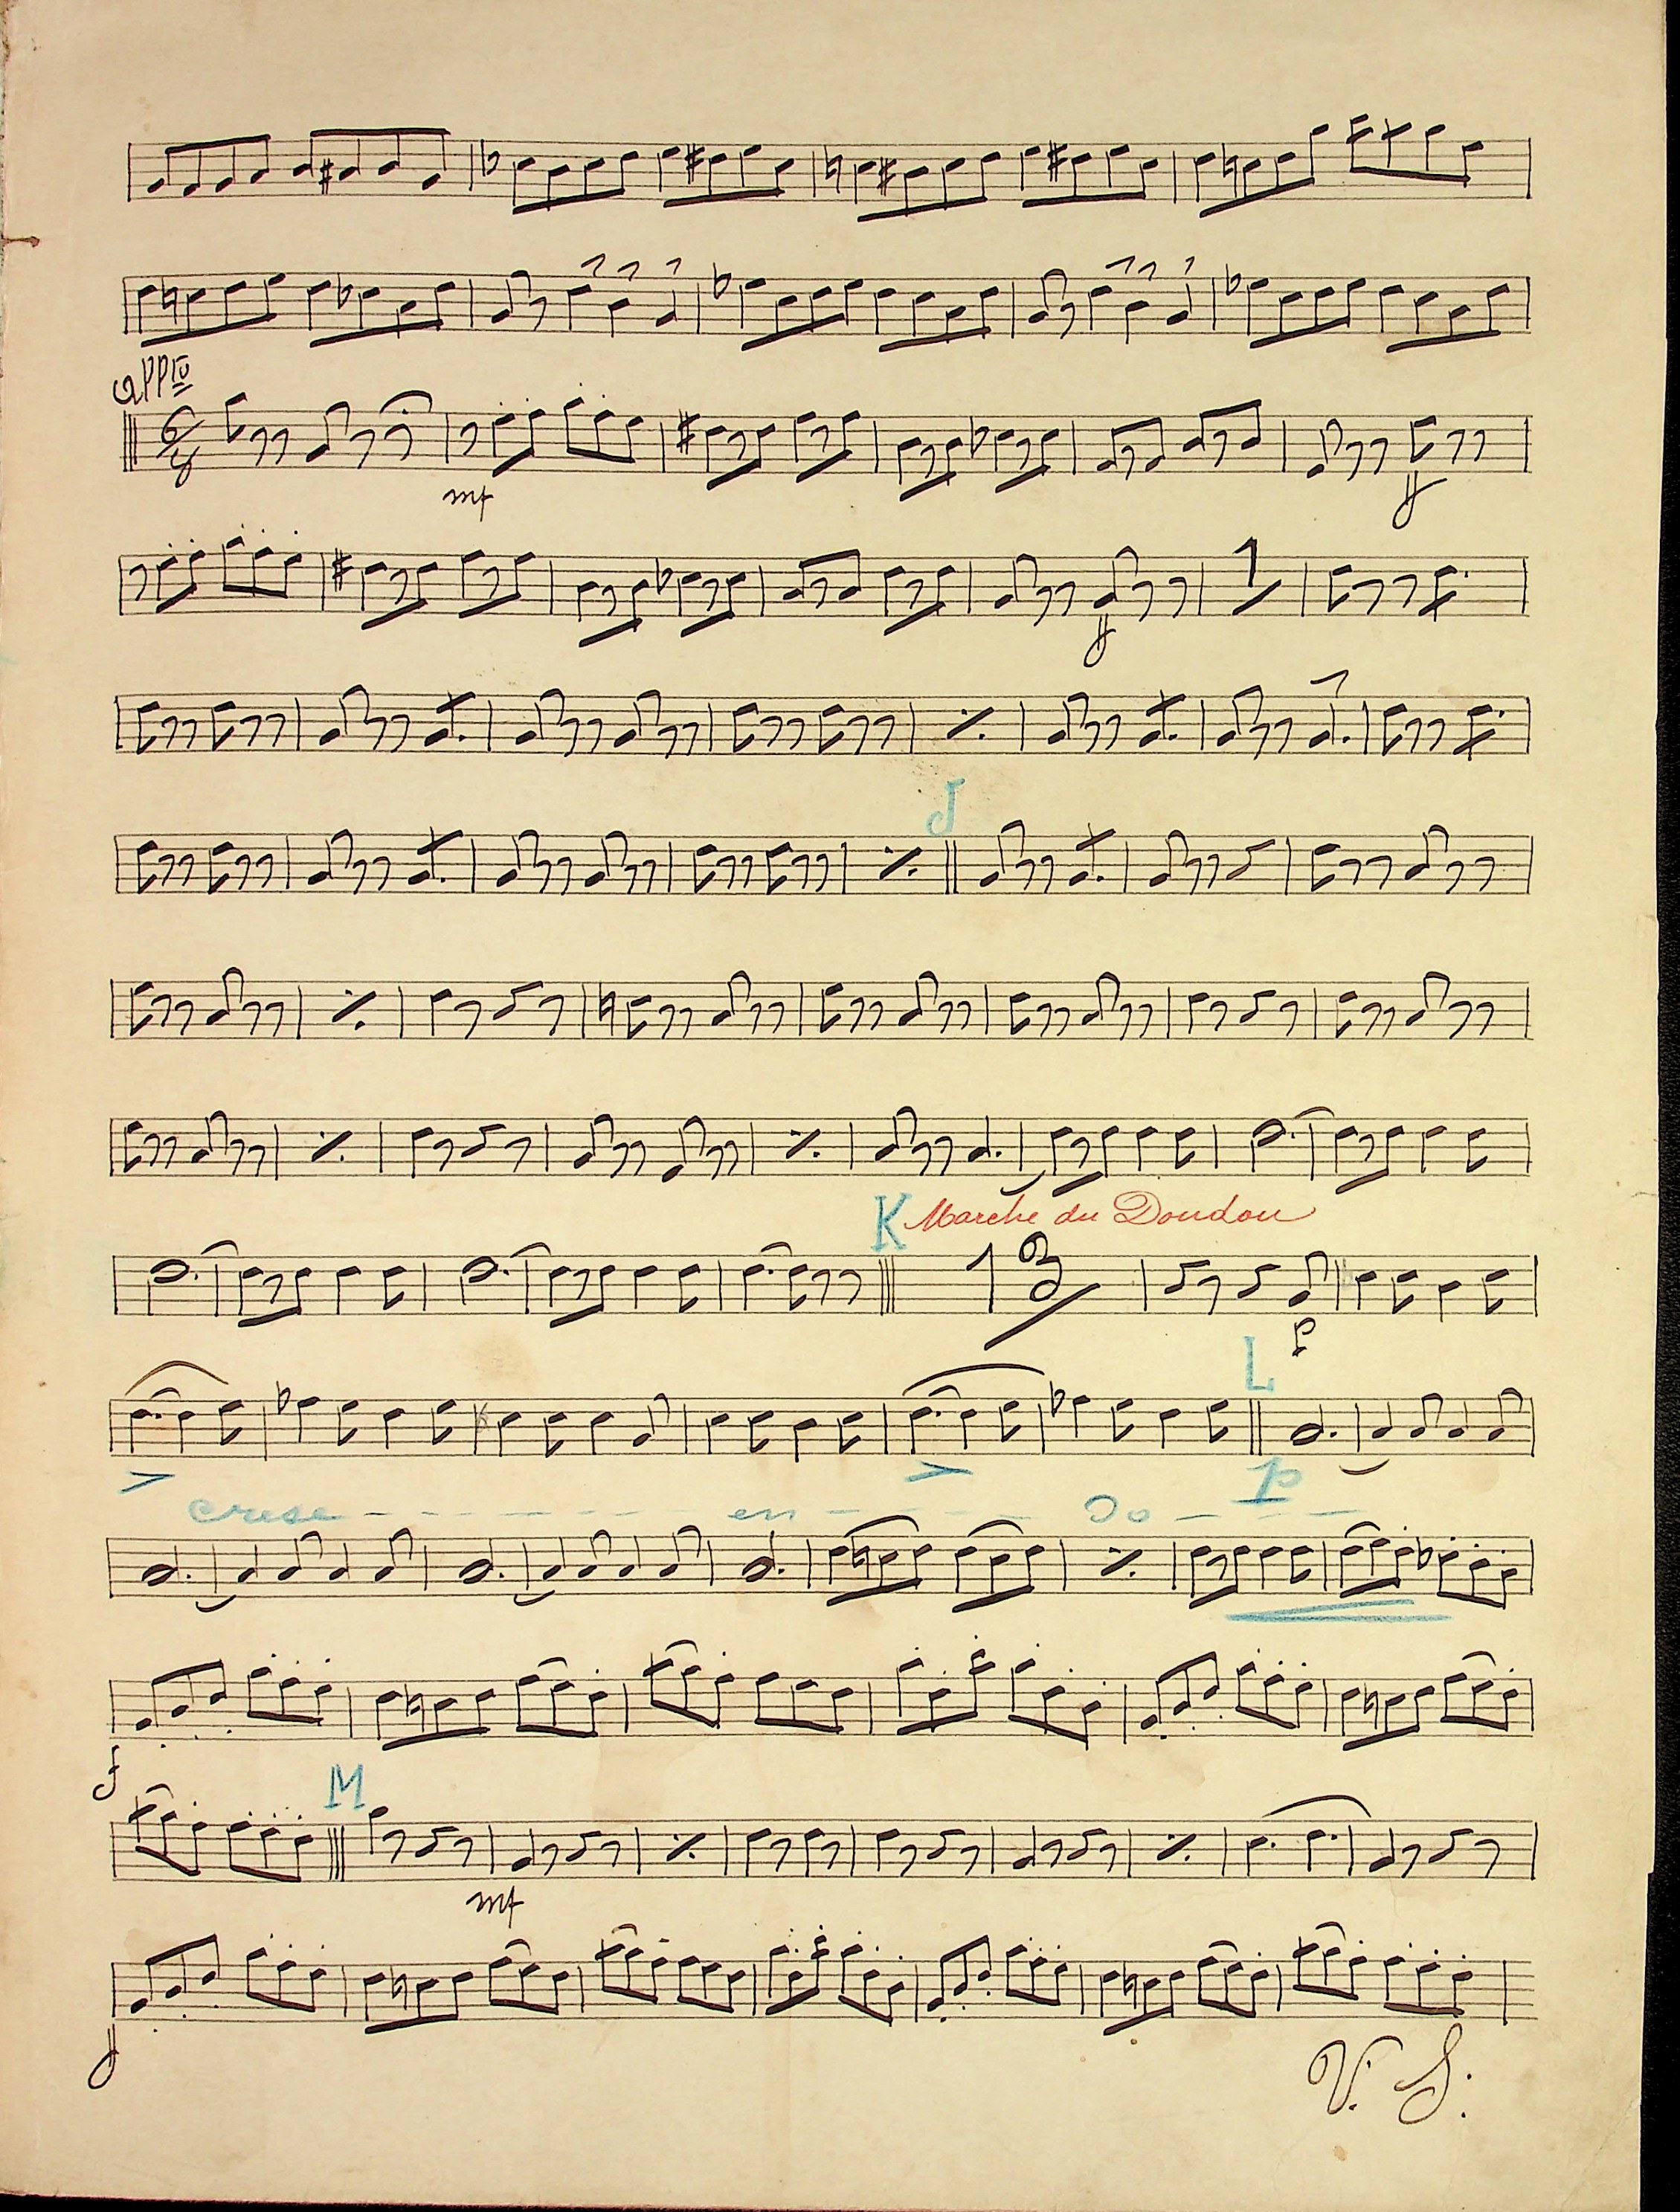 allº
6/8
mf
ff
ff
1
J
K Marche du Doudou
13
p
L
p
cresc - - - - - en - - - - do - - -
f
M
mf
ff
V. S.